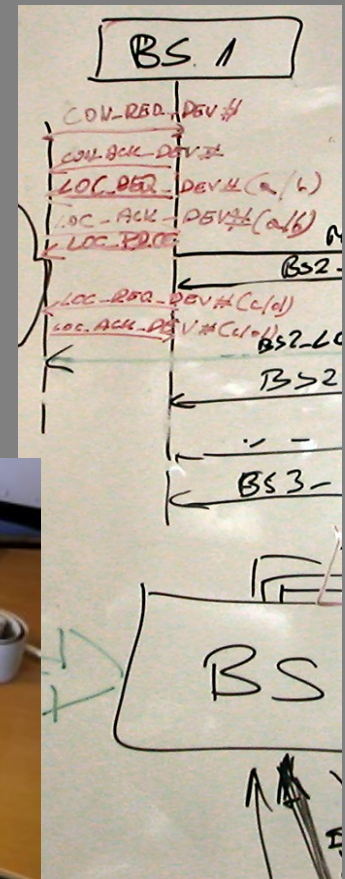 BS. 1
CON_REQ_DEV#
CON_ACK_DEV#
LOC_REQ_DEV#(a/b)
LOC_ACK_DEV#(a/b)
BS2-
LOC_REQ_DEV#(c/d)
LOC_ACK_DEV#(c/d)
BS2_LO
BS2
BS3-
BS